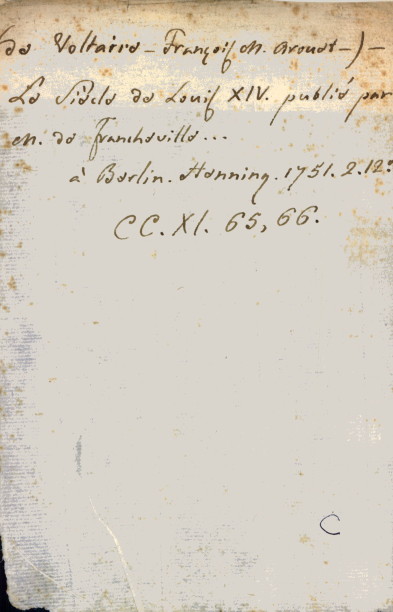 (de Voltaire - François M. Arouet -) -
Le Siècle de Louis XIV. publié par
M. de Francheville...
à Berlin. Henning. 1751. 2. 12º
CC. XI. 65, 66.
C